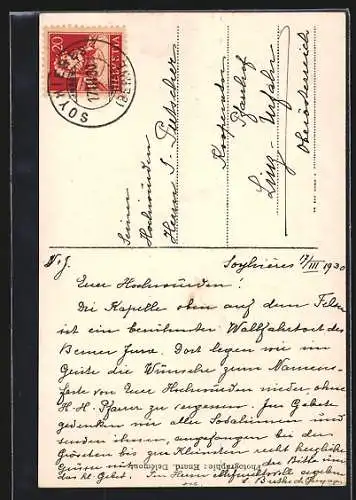 20
HELVETIA
SOYHIÈRES
17.III.30
Seiner
Hochwürden
Herrn J. Lutscher
Kooperator
Pfarrhof
Linz-Urfahr
Oberösterreich
Soyhières 17/III 1930
Euer Hochwürden!
Die Kapelle oben auf dem Felsen
ist ein berühmter Wallfahrtsort des
Berner Jura. Dort legen wir im
Geiste die Wünsche zum Namens-
feste von Euer Hochwürden nieder ohne
H. H. Pfarrer zu vergessen. Im Gebete
gedenken wir aller Sodalinnen und
senden ihnen, angefangen bei den
Grössten bis zum Kleinsten recht herzliche
Grüsse mit der Bitte um
das hl. Gebet. Im Herrn ergeben
Photographie: Enard, Delémont